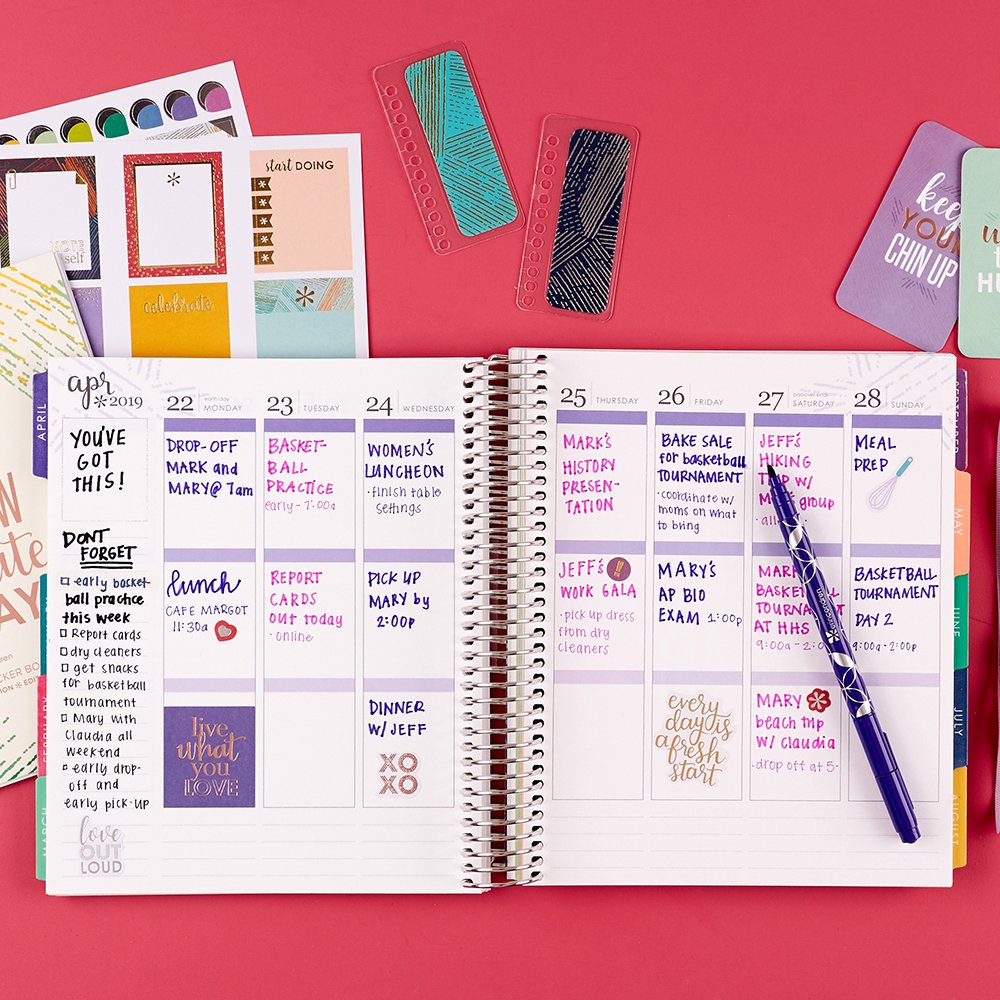 start DOING
NOTE
self
celebrate
keep
YOUR
CHIN UP
HU
APRIL
FEBRUARY
MARCH
apr
2019
YOU'VE
GOT
THIS!
DON'T
FORGET
early basket
ball practice
this week
Report cards
dry cleaners
get snacks
for basketball
tournament
Mary with
Claudia all
weekend
early drop-
off and
early pick-up
love
OUT
LOUD
22 earth day
MONDAY
DROP-OFF
MARK and
MARY@ 7am
lunch
CAFE MARGOT
11:30a
live
what
you
LOVE
23 TUESDAY
BASKET-
BALL
PRACTICE
early - 7:00a
REPORT
CARDS
OUT today
· online
24 WEDNESDAY
WOMEN'S
LUNCHEON
· finish table
settings
PICK UP
MARY by
2:00p
DINNER
W/ JEFF
XO
XO
25 THURSDAY
MARK'S
HISTORY
PRESEN-
TATION
JEFF'S
WORK GALA
· pick up dress
from dry
cleaners
26 FRIDAY
BAKE SALE
for basketball
TOURNAMENT
· coordinate w/
moms on what
to bring
MARY'S
AP BIO
EXAM 1:00p
every
day is
a fresh
start
27 passover ends
SATURDAY
JEFF'S
HIKING
TRIP W/
group
MARK
BASKETBALL
TOURNAMENT
AT HHS
9:00a - 2:00
MARY
beach trip
W/ Claudia
· drop off at 5 ·
28 SUNDAY
MEAL
PREP
BASKETBALL
TOURNAMENT
DAY 2
9:00a - 2:00p
SEPTEMBER
MAY
JUNE
JULY
AUGUST